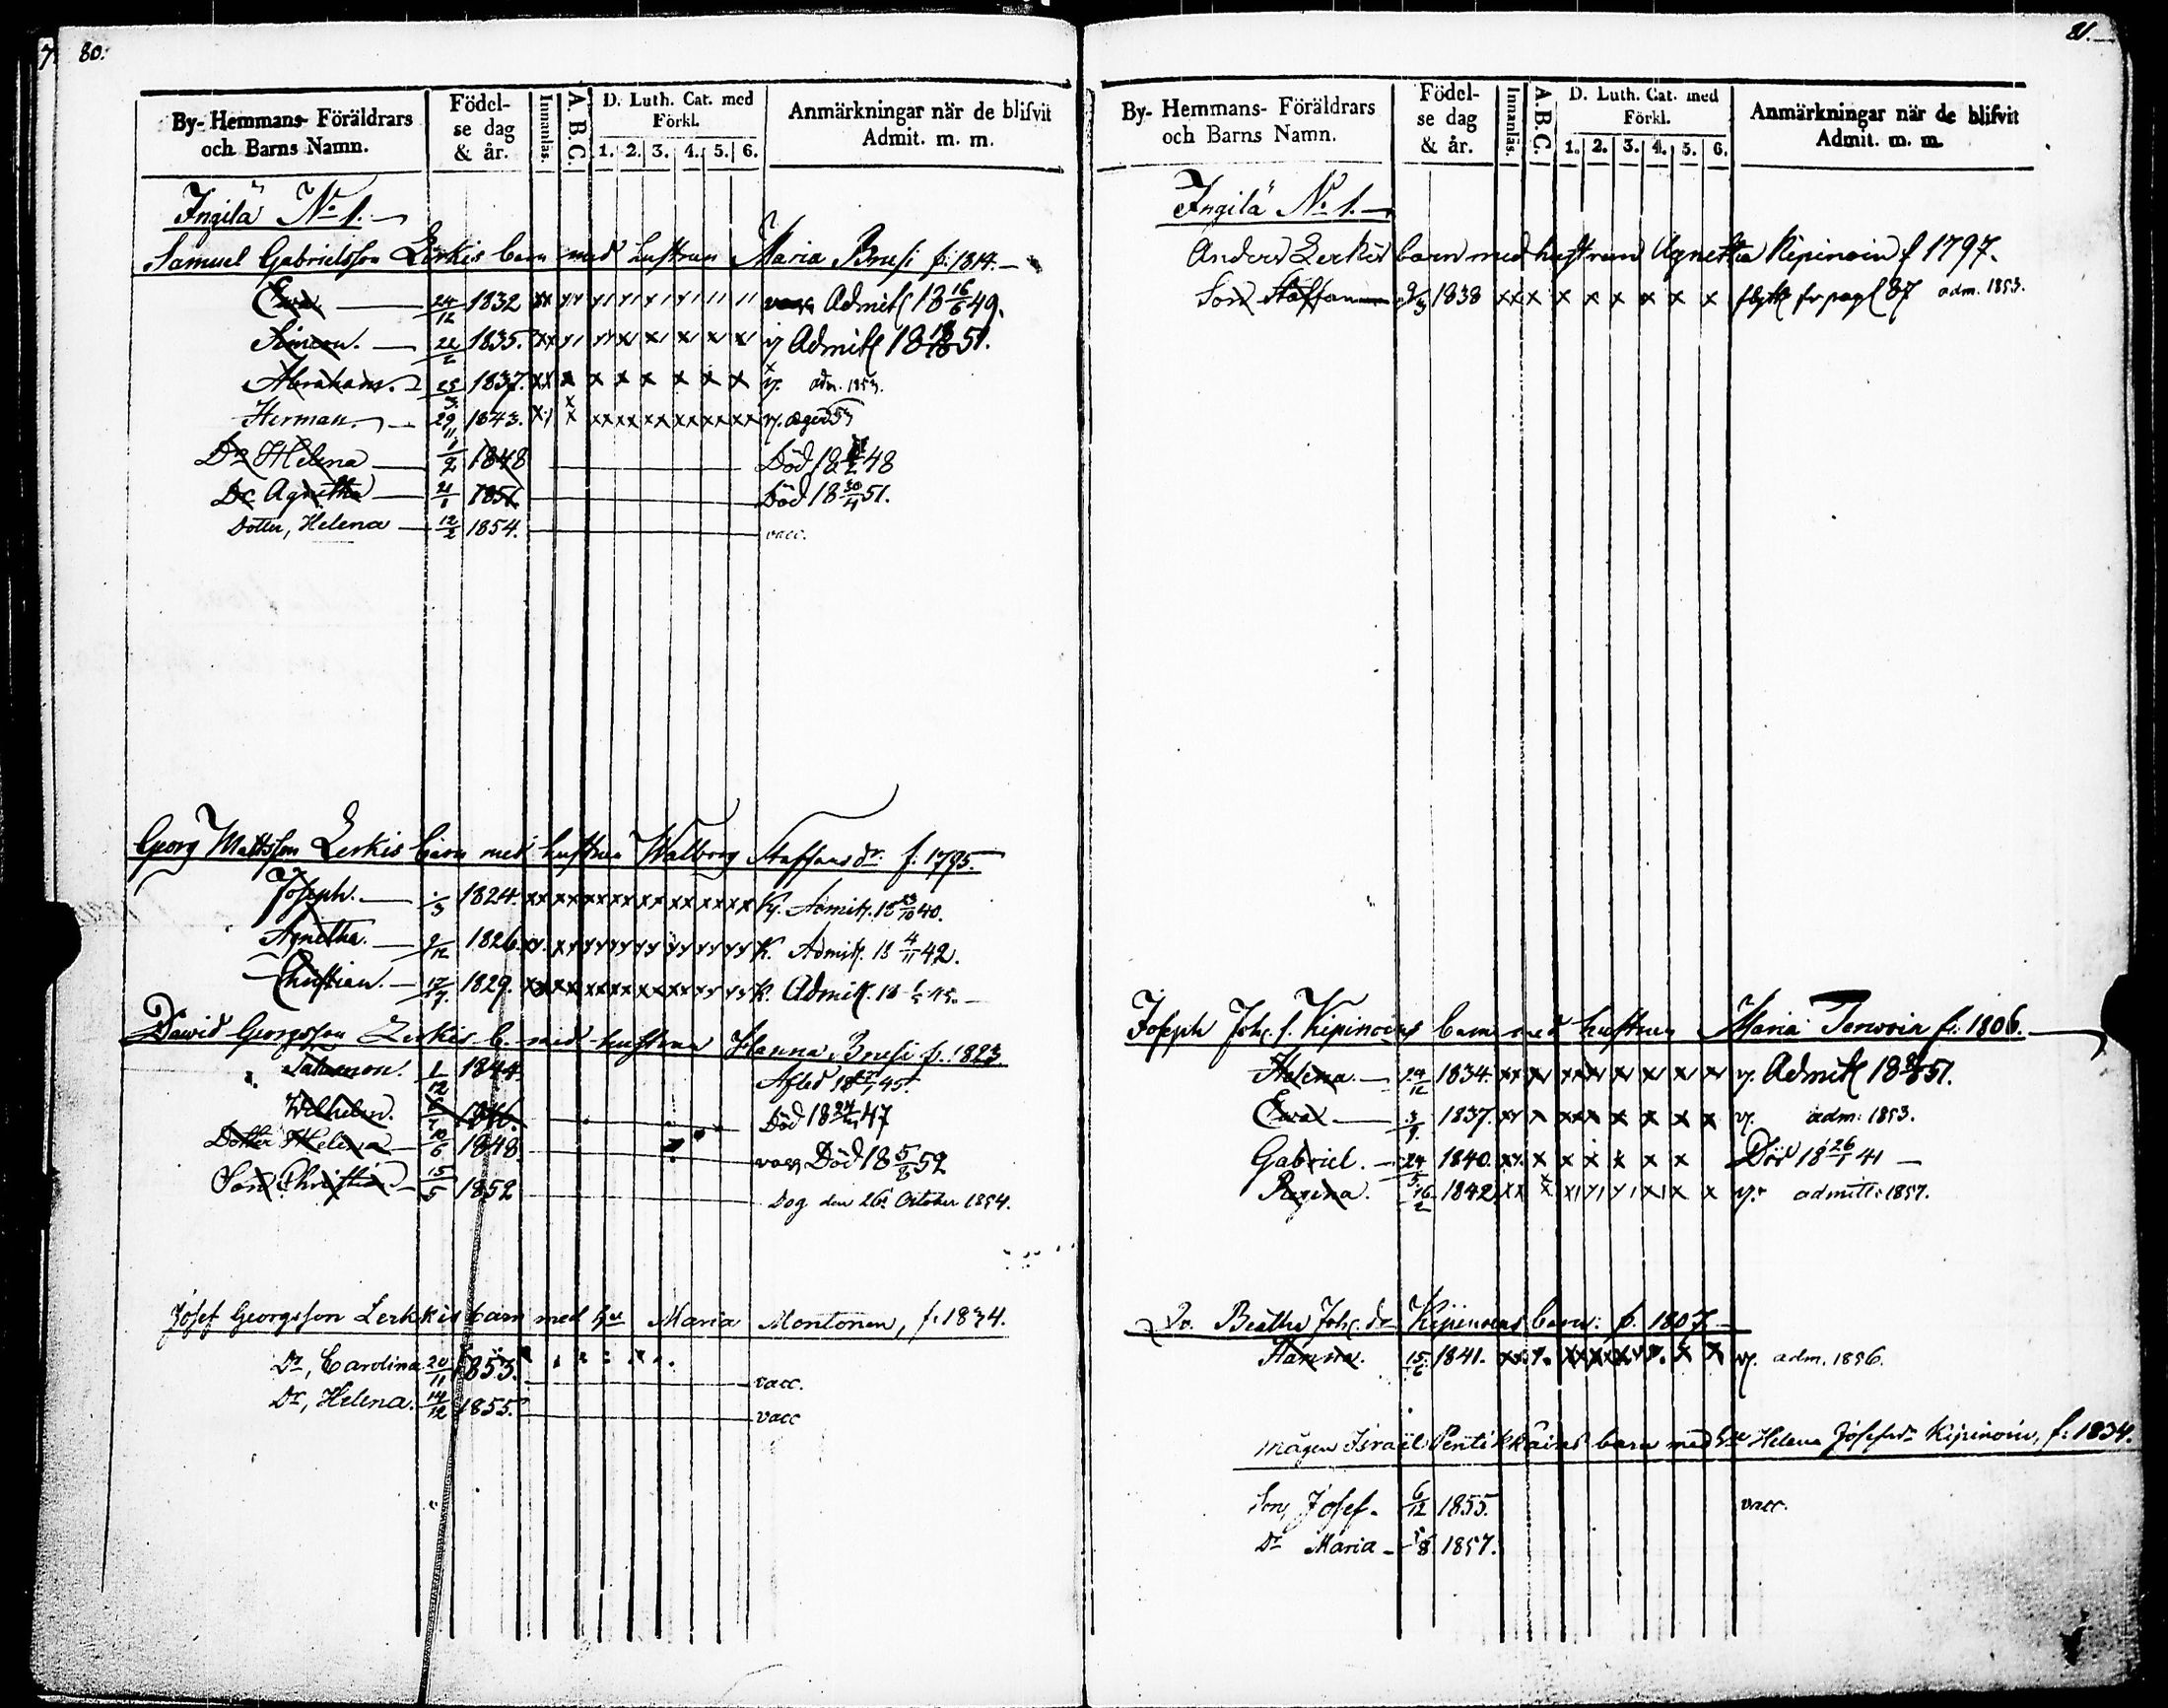 80.
By- Hemmans- Föräldrars och Barns Namn. Födelse dag & år. Innanläs. A.B.C. D. Luth. Cat. med Förkl. 1. 2. 3. 4. 5. 6. Anmärkningar när de blifvit Admit. m. m.
Ingilä No 1.
Samuel Gabrielsson Lerkis barn med hustrun Maria Brusi f. 1814.
Ewa 24/12 1832 Admitt 18 16/6 49.
Simeon. 22/2 1835. Admitt 18 51.
Abraham. 25/3 1837. adm. 1853.
Herman. 29/11 1843.
Dr Helena 1/2 1848 Död 18 48
Dr Agnetha 21/1 1851 Död 18 30/4 51.
Dotter, Helena 12/2 1854. vacc.
Georg Mattsson Lerkis barn med hustrun Walborg Staffansdr. f. 1795.
Joseph. /3 1824. Admitt. 18 40.
Agnetha. 9/12 1826. Admitt. 18 4/11 42.
Christian. 17/7 1829. Admitt. 18 45.
Dawid Georgsson Lerkis b. med hustrun Hanna Brusi f. 1823.
Salomon. 1/12 1844. Afled 18 45.
Wilhelm. 1846. Död 18 47
Dotter Helena 10/6 1848. vacc Död 18 5/6 52
Son Christian 15/5 1852 Dog den 26 October 1854.
Josef Georgsson Lerkkis barn med hu Maria Montonen, f. 1834.
Dr, Carolina 20/11 1853. vacc.
Dr, Helena. 14/12 1855. vacc
81.
By- Hemmans- Föräldrars och Barns Namn. Födelse dag & år. Innanläs. A.B.C. D. Luth. Cat. med Förkl. 1. 2. 3. 4. 5. 6. Anmärkningar när de blifvit Admit. m. m.
Ingilä No 1.
Anders Lerkis barn med hustrun Agnetha Kipinoin f 1797.
Son Staffan 1838 87 adm. 1853.
Joseph Joh. s. Kipinoins barn med hustrun Maria Terwoin f. 1806.
Helena. 24/12 1834. Admitt 18 51.
Ewa 3/9 1837. adm: 1853.
Gabriel. 24/5 1840. Död 18 26/1 41
Regina. 16/2 1842 admitt. 1857.
Beatha Joh. dr Kipinoins barn: f. 1807
Hanna. 15/6 1841. adm. 1856.
mågen Israel Pentikkäins barn med Helena Josefsdr Kipinoin, f. 1834.
Son Josef. 6/12 1855. vacc.
Dr Maria 8 1857.